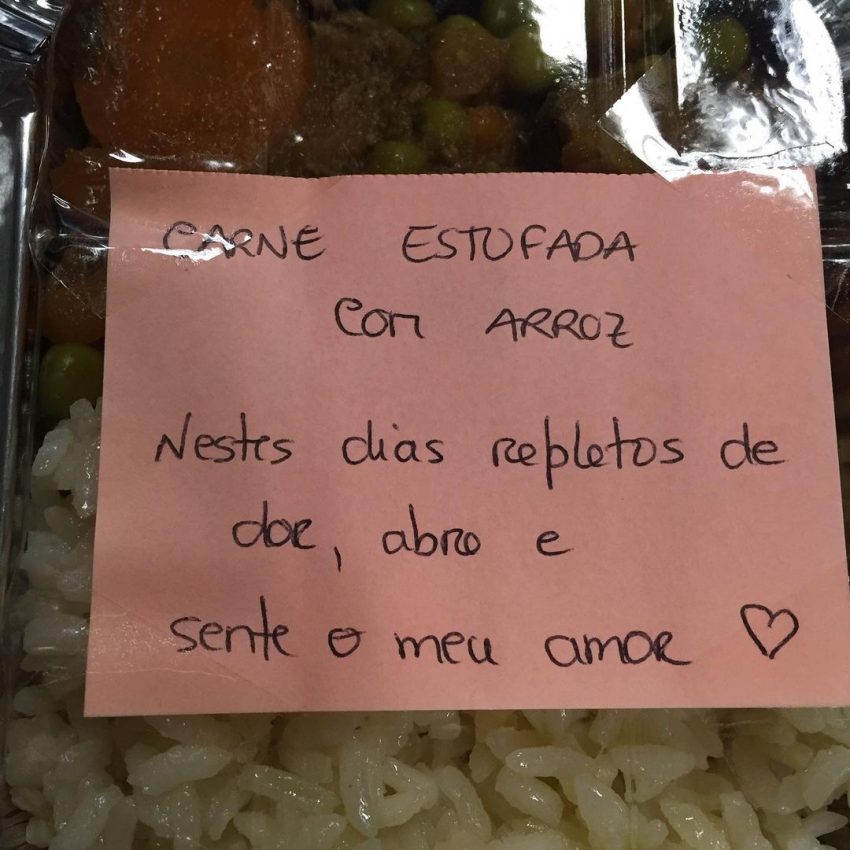 CARNE ESTUFADA
COM ARROZ
Nestes dias repletos de
dor, abro e
sente o meu amor ♡